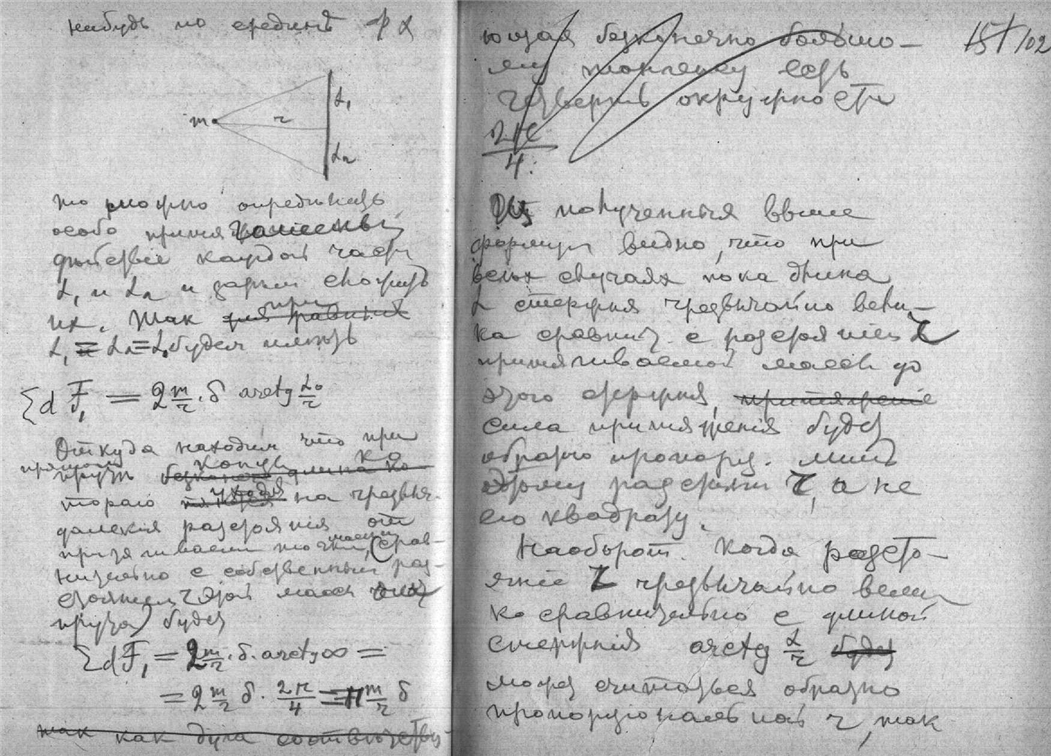 нибудь по срединѣ
m
r
L₁
L₂
то можно опредѣлять
особо притя
дѣйствіе каждой части
L₁ и L₂ и затем сложить
их. Так при
L₁ = L₂ = L₀ будем имѣть
ΣdF₁ = 2 m/r · δ arctg L₀/r
Откуда находим что при
прутѣ конец ко
тораго на чрезвыч.
далекія разстоянія от
притягиваем точки, срав-
нительно с собственным раз-
стоянием этой массы
прута будет
ΣdF₁ = 2 m/r · δ · arctg ∞ =
= 2 m/r δ · 2π/4 = π m/r δ
так как дуга соотвѣтству-
157/102
ющая безконечно большо-
му тангенсу есть
четверть окружности
2π/4.
Из полученныя выше
формул видно, что при
всѣх случаях пока длина
L стержня чрезвычайно вели-
ка сравнит. с разстояніем r
притягиваемой массы до
этого стержня, притяжение
сила притяженія будет
обратно пропорц. лишь
этому разстоян. r, а не
его квадрату.
Наоборот когда разсто-
яніе r чрезвычайно вели
ко сравнительно с длиной
стержня arctg L/r будет
может считаться обратно
пропорціональной r, так